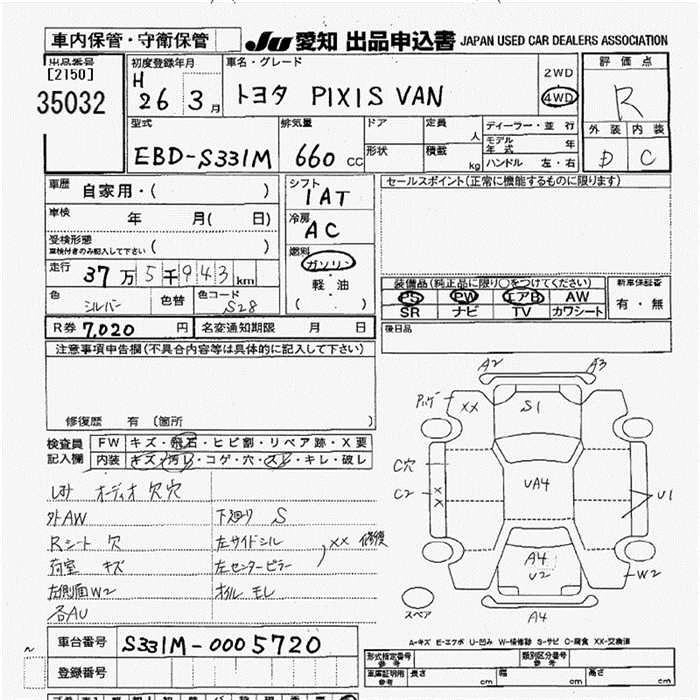 車内保管・守衛保管
JU 愛知 出品申込書 JAPAN USED CAR DEALERS ASSOCIATION
出品番号
[2150]
35032
初度登録年月
H
26 3月
車名・グレード
トヨタ PIXIS VAN
2WD
4WD
評価点
R
外装 内装
D C
型式
EBD-S331M
排気量
660 cc
ドア
形状
定員
人
積載
kg
ディーラー・並行
モデル年式 年
ハンドル 左・右
車歴 自家用・( )
車検 年 月( 日)
受検形態
車検付きのみ記入して下さい ( )
走行 37万5千943km
色 シルバー 色替 色コード S28
R券 7,020 円 名変通知期限 月 日
シフト
IAT
冷房
AC
燃料
ガソリン
軽・油
( )
セールスポイント(正常に機能するものに限ります)
装備品(純正品に限り○をつけてください)
PS PW エアB AW
SR ナビ TV カワシート
新車保証書
有・無
後日品
注意事項申告欄(不具合内容等は具体的に記入して下さい)
修復歴 有 〔箇所 〕
検査員
記入欄
FW キズ・飛石・ヒビ割・リペア跡・X要
内装 キズ・汚レ・コゲ・穴・スレ・キレ・破レ
オーディオ欠穴
外AW
Rシート 穴
荷室 キズ
左側面W2
各AU
下廻り S
左サイドシル
左センターピラー
XX 修復
オイルモレ
A2 A3
XX S1
C穴
C2 XX
UA4
U1
A4
U2
W2
A4
スペア
A-キズ E-エクボ U-凹み W-補修跡 S-サビ C-腐食 XX-交換済
車台番号 S331M-0005720
登録番号
形式指定番号
参考
類別区分番号
参考
車庫証明用
参考
長さ cm 幅 cm 高さ cm